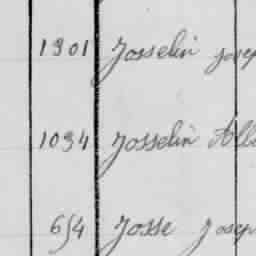 1901 Josselin Josep
1094 Josselin Alb
654 Josse Josep